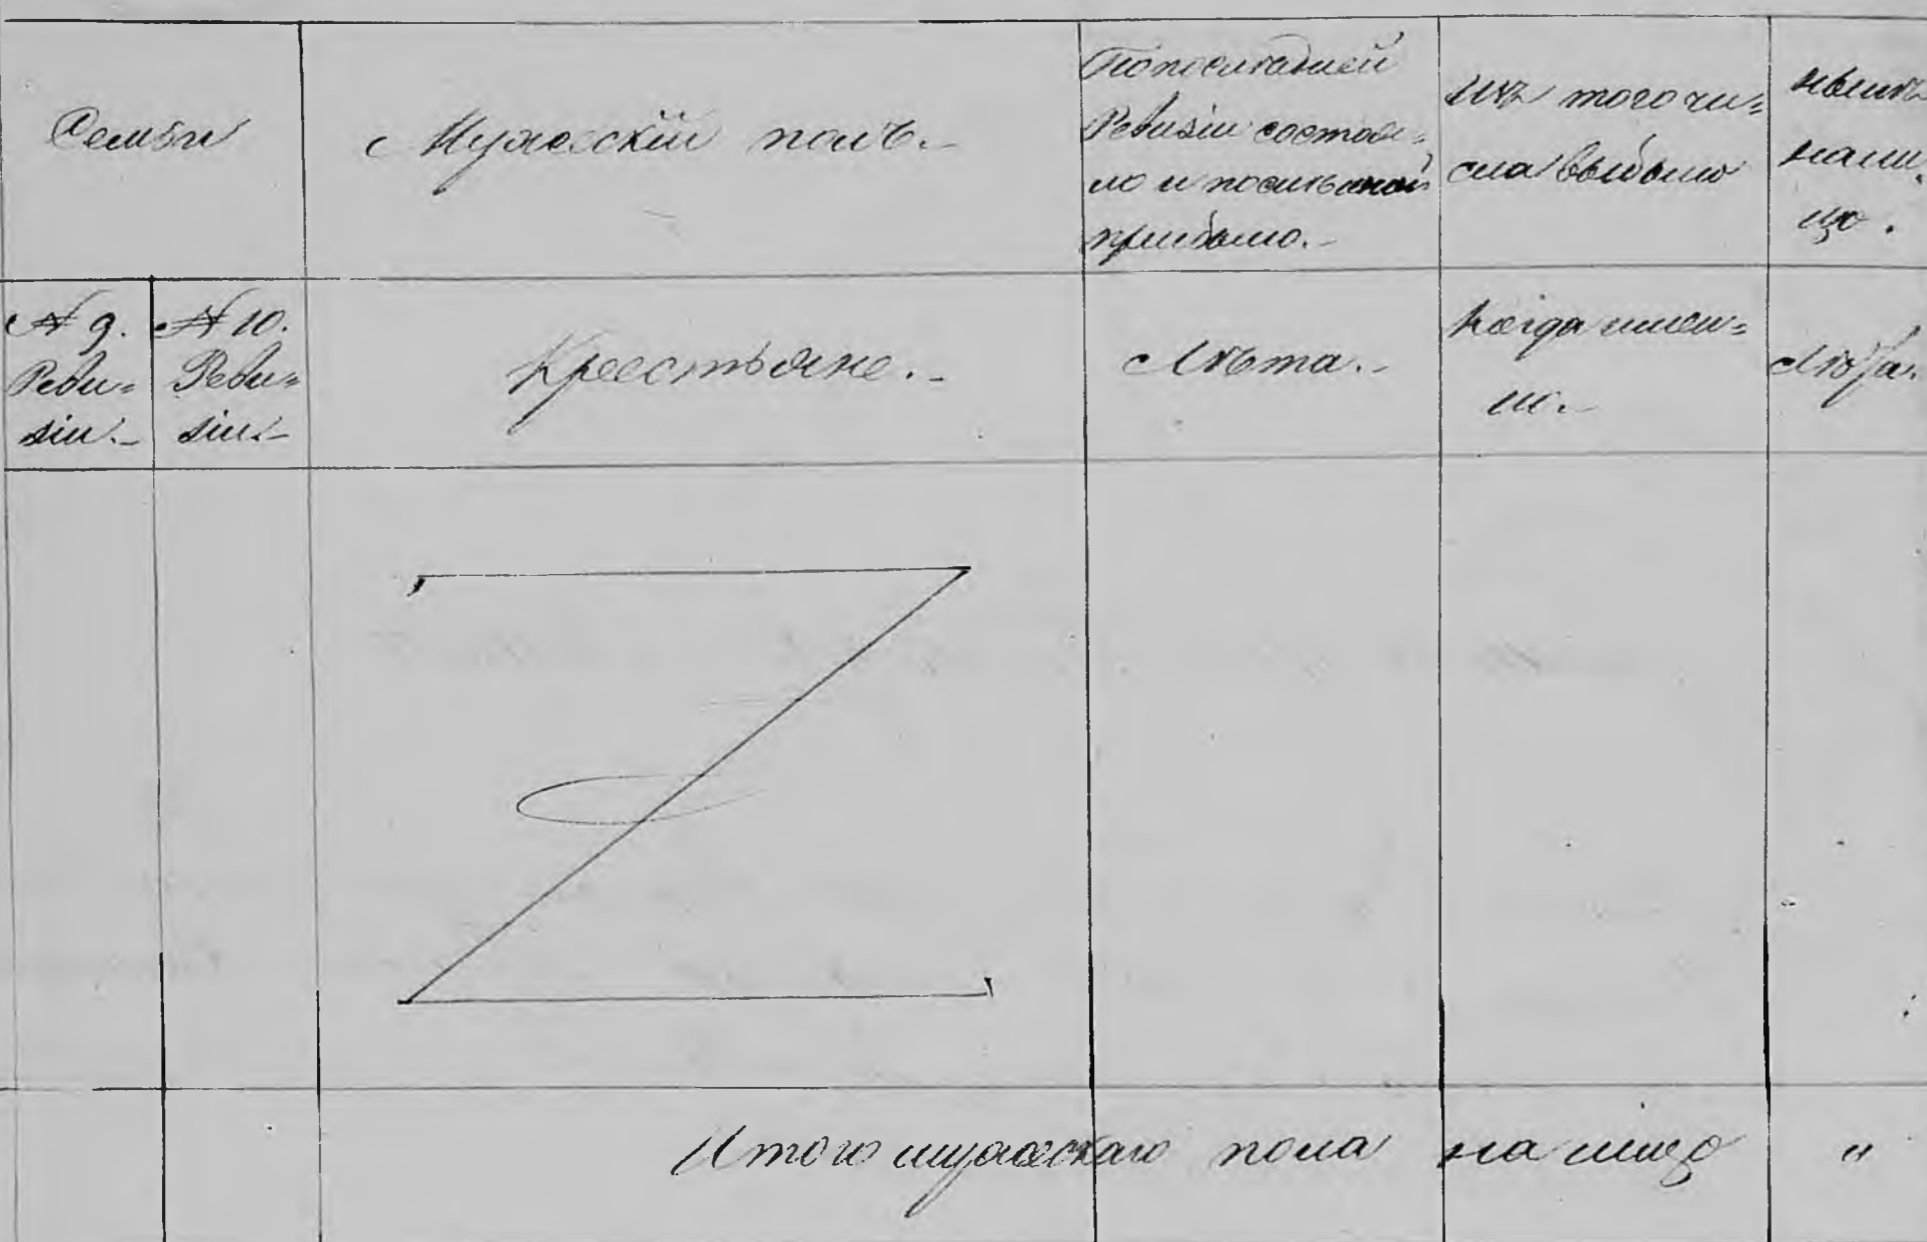 Семьи
Мужескій полъ.-
По последней
Ревизіи состоя=
ло и после оной
прибыло.-
Изъ того чи=
сла выбыло
Нынѣ
на ли=
цо.
№ 9.
Реви=
зіи.-
№ 10.
Реви=
зіи.-
Крестьяне.-
Лѣта.-
Когда имен=
но.-
Лѣта.
Итого мужескаго пола на лицо "